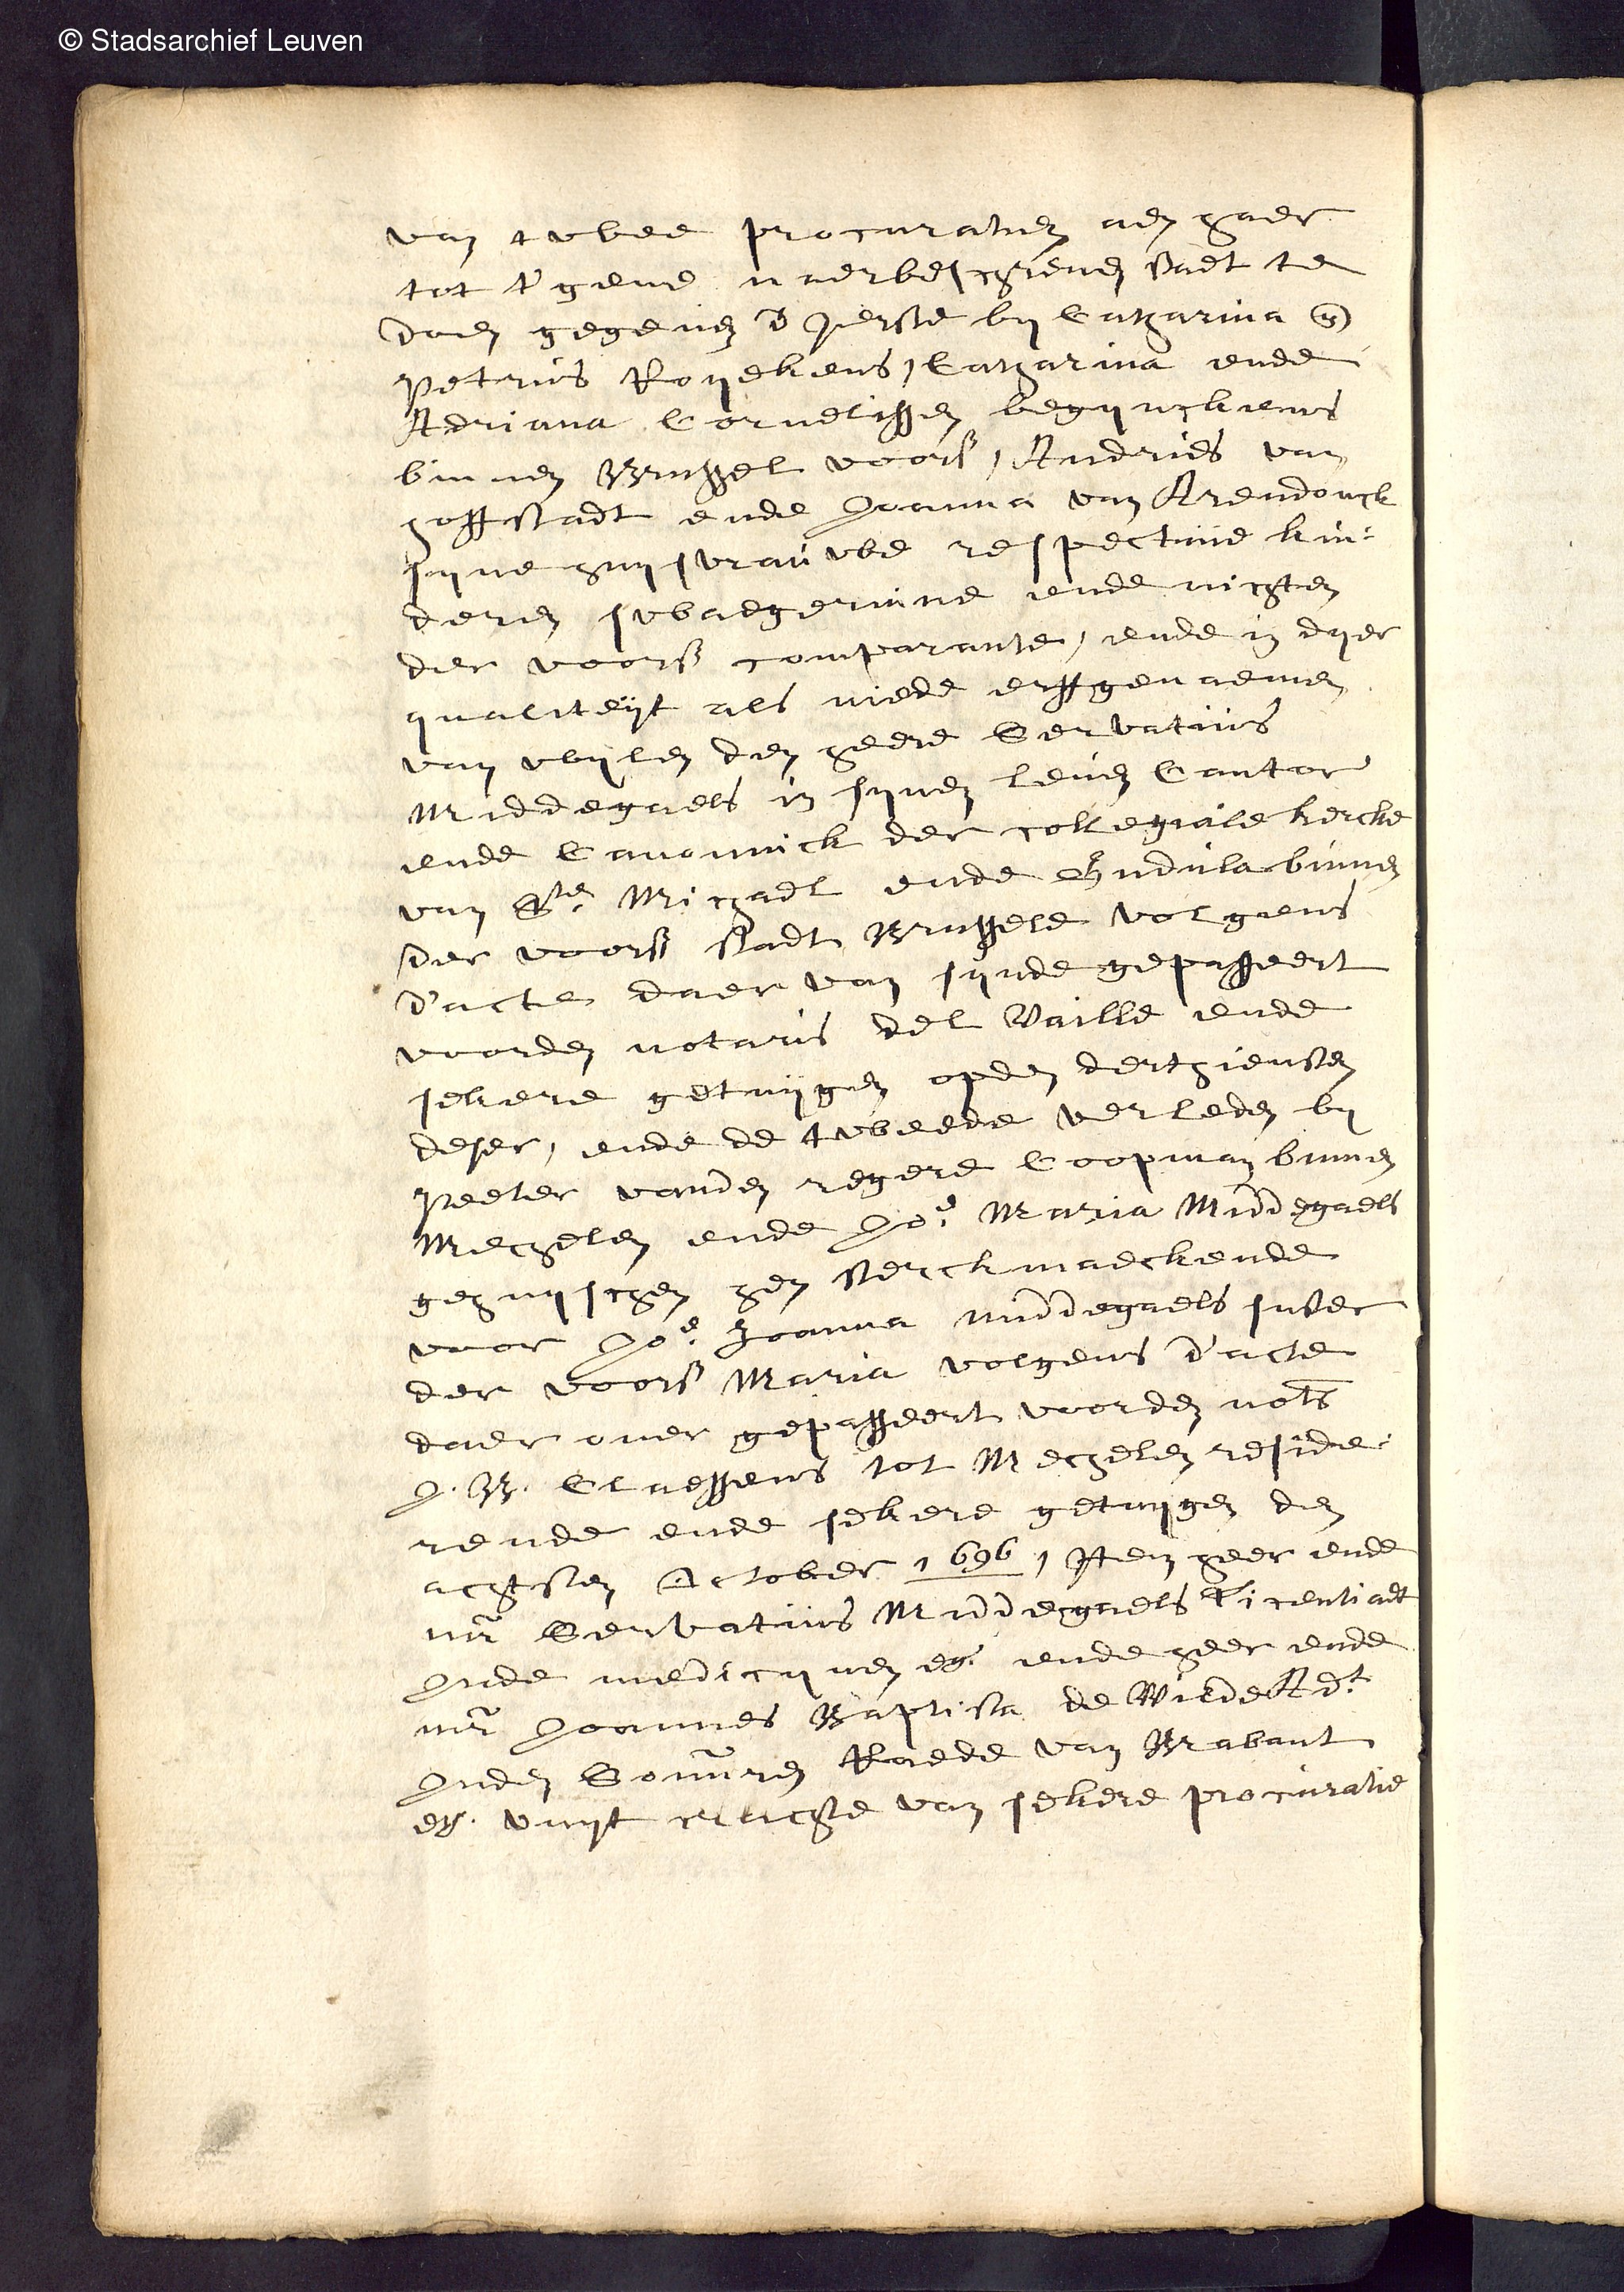 © Stadsarchief Leuven
van twee procuratien aen haer
tot t'gene naerbeschreven staet te
doen gegeven d'ierste by Catharina @
Petrus Royekens, Catharina ende
Adriana Cornelissen begynckens
binnen Brussel voors, Andries van
hoffstadt ende Joanna van Arendonck
syne huysvrauwe respective kin:
deren swaegerinne ende nichten
der voors comparante, ende in dyer
qualiteyt als mede erffgenaemen
van wylen den heere Servatius
Middegaels in synen leven Cantor
ende Canonnick der collegiale kercke
van Ste. Michael ende Gudula binnen
der voors stadt Brussele volgens
d'acte daer van synde gepasseert
voorden notaris del Vaille ende
sekere getuygen opden derthiensten
deser, ende de tweede verleden by
Peeter vanden regere Coopman binnen
Mechelen ende Joe. Maria Middegaels
gehuyschen hen sterckmaeckende
voor Joe. Joanna middegaels suster
der voors Maria volgens d'acte
daer over gepasseert voorden nots
J. B. Claessens tot Mechelen reside:
rende ende sekere getuygen den
achtsten October 1696, Item heer ende
mr Servatius Middegaels Licentiaet
Inde medicynen etc. ende heer ende
mr Joannes Baptista de Wilde Adt.
Inden Souvren Raede van Brabant
etc. vuyt crachte van sekere procuratie